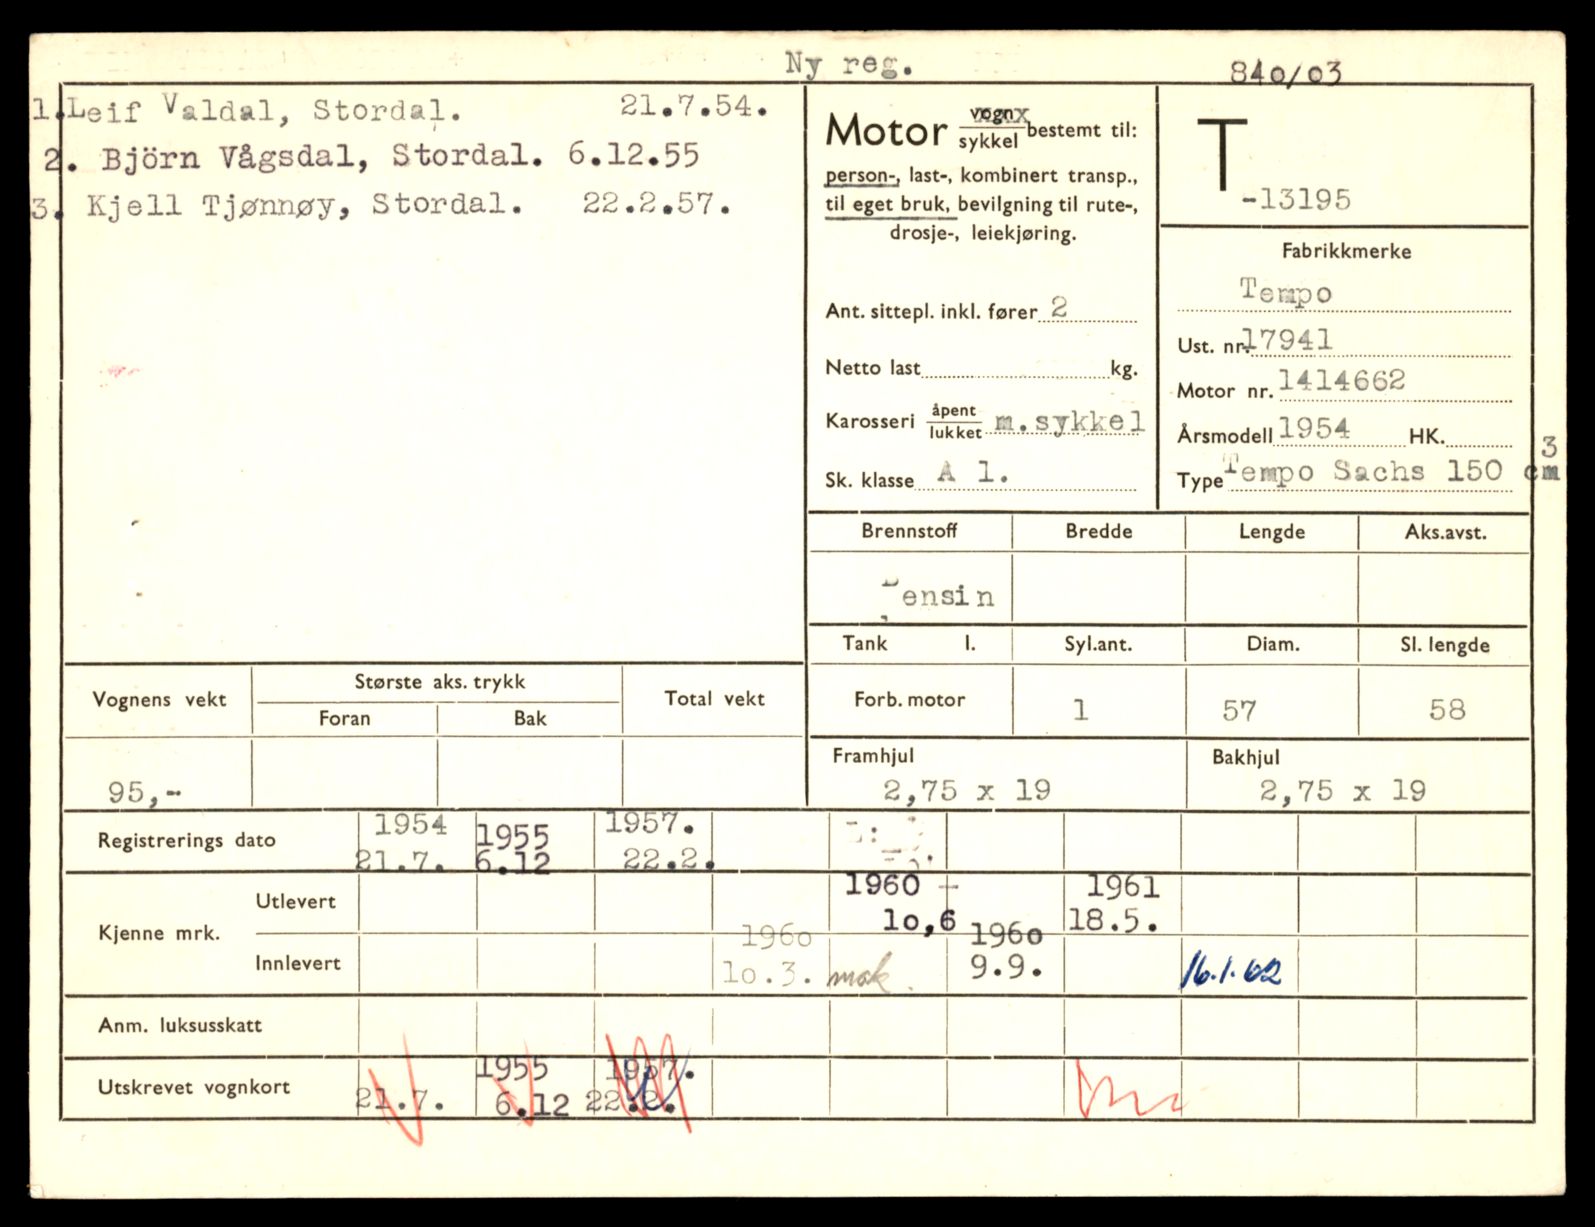 Ny reg.
840/03
1. Leif Valdal, Stordal. 21.7.54.
2. Björn Vågsdal, Stordal. 6.12.55
3. Kjell Tjønnøy, Stordal. 22.2.57.
Motor vogn/sykkel bestemt til:
person-, last-, kombinert transp.,
til eget bruk, bevilgning til rute-,
drosje-, leiekjøring.
Ant. sittepl. inkl. fører 2
Netto last kg.
Karosseri åpent/lukket m.sykkel
Sk. klasse A 1.
T
-13195
Fabrikkmerke
Tempo
Ust. nr. 17941
Motor nr. 1414662
Årsmodell 1954 HK.
Type Tempo Sachs 150 cm3
Brennstoff Bredde Lengde Aks.avst.
Bensin
Tank l. Syl.ant. Diam. Sl. lengde
Forb. motor 1 57 58
Framhjul Bakhjul
2,75 x 19 2,75 x 19
Vognens vekt Største aks. trykk Total vekt
Foran Bak
95,-
Registrerings dato 1954 1955 1957.
21.7. 6.12 22.2.
Kjenne mrk.
Utlevert 1960 1961
10,6 18.5.
Innlevert 1960 1960
10.3. mak. 9.9. 16.1.62
Anm. luksusskatt
Utskrevet vognkort 1955 1957.
21.7. 6.12 22.2.